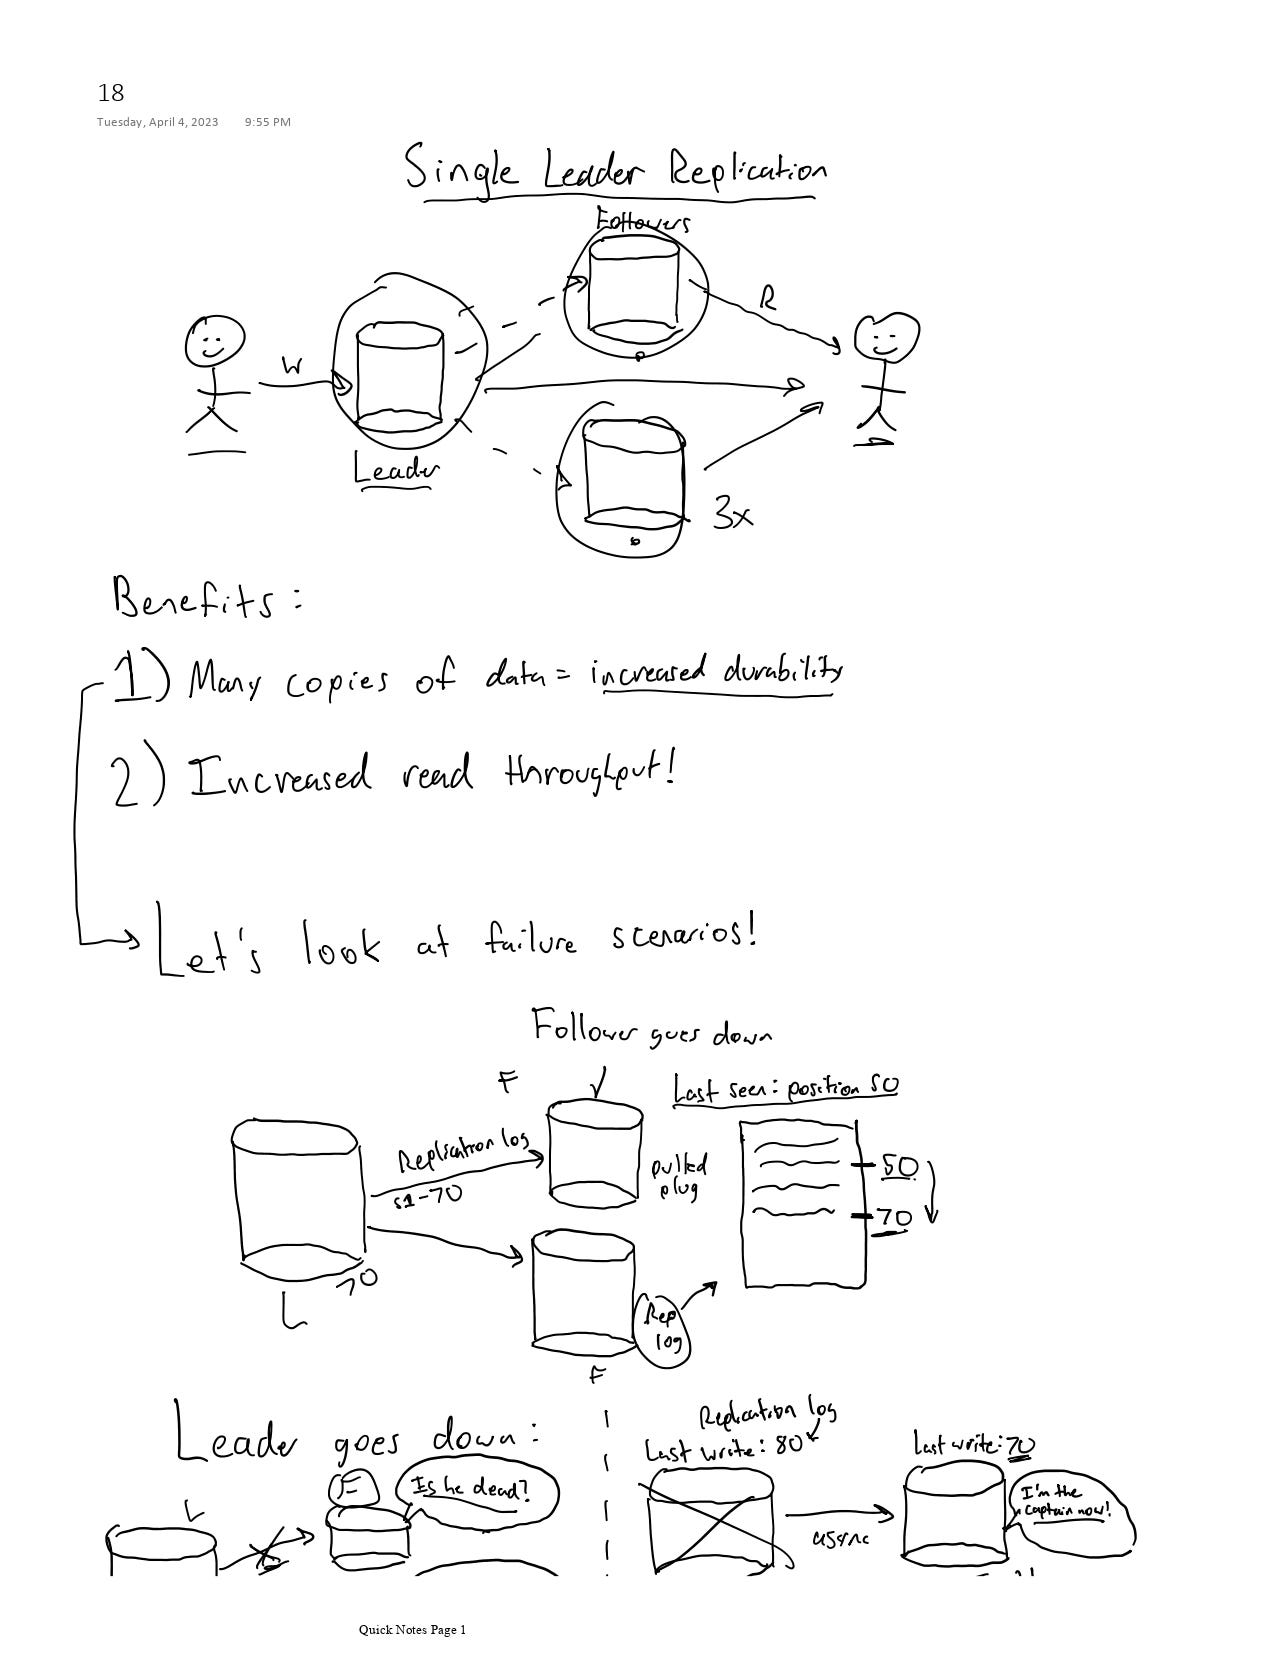 18
Tuesday, April 4, 2023 9:55 PM
Single Leader Replication
Followers
R
W
Leader
3x
Benefits:
1) Many copies of data = increased durability
2) Increased read throughput!
Let's look at failure scenarios!
Follower goes down
F
Last seen: position 50
Replication log
51-70
pulled
plug
50
70
70
L
Rep
log
F
Leader goes down:
Replication log
Last write: 80
Last write: 70
L
F
Is he dead?
I'm the
captain now!
async
Quick Notes Page 1